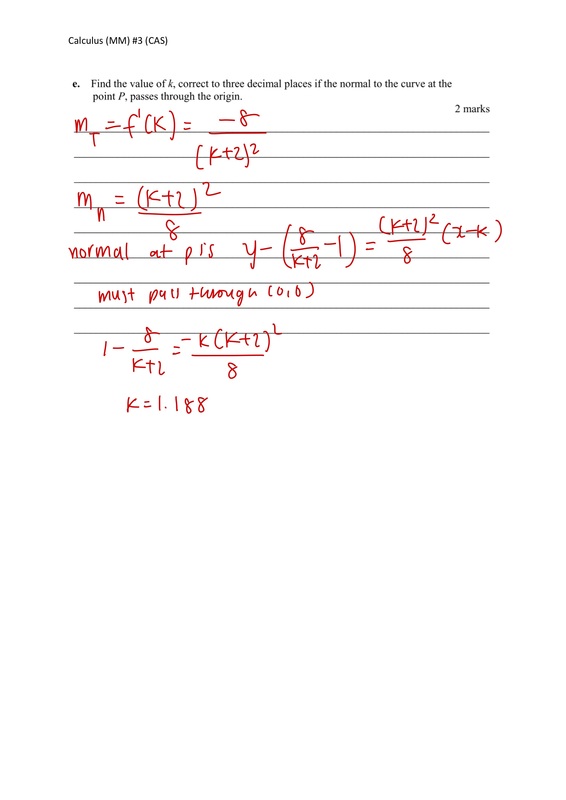 Calculus (MM) #3 (CAS)
e. Find the value of k, correct to three decimal places if the normal to the curve at the
point P, passes through the origin.
2 marks
m_T = f'(k) = -8/(k+2)^2
m_n = (k+2)^2/8
normal at p is y-(8/(k+2) -1) = (k+2)^2/8 (x-k)
must pass through (0,0)
1 - 8/(k+2) = -k(k+2)^2/8
k=1.188